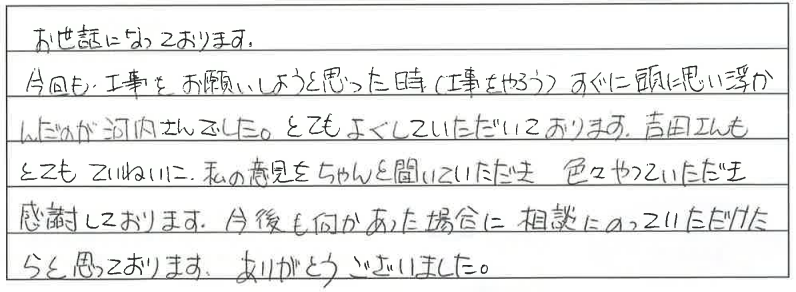 お世話になっております。
今回も、工事をお願いしようと思った時(工事をやろう)すぐに頭に思い浮か
んだのが河内さんでした。とてもよくしていただいております。吉田さんも
とてもていねいに、私の意見をちゃんと聞いていただき 色々やっていただき
感謝しております。今後も何かあった場合に相談にのっていただけた
らと思っております。ありがとうございました。